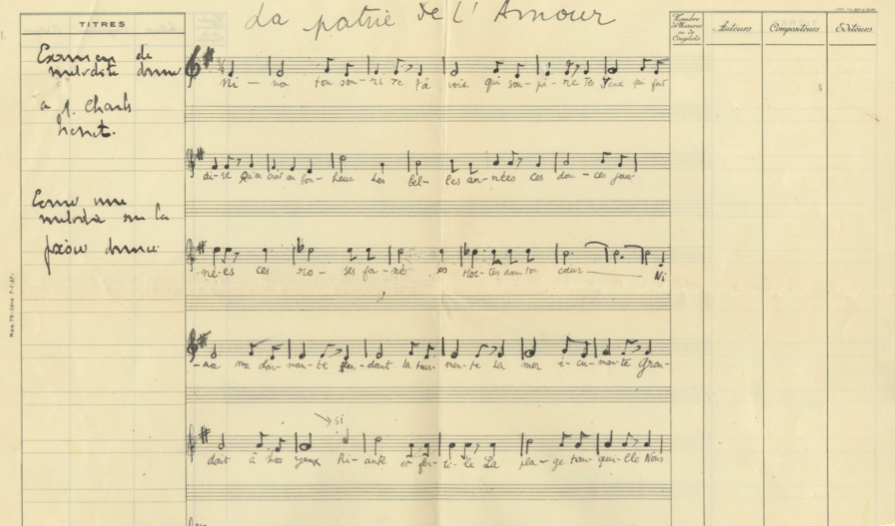 La patrie de L'Amour
TITRES
Nombre de Mesures ou de Couplets
Auteurs
Compositeurs
Editeurs
Examen de
melodie donné
a M. Charles
Ecrire une
melodie sur la
donnée
Ni - na ton sou - ri - re t'a voix qui sou - pi - re Tes yeux qui font
di - re qu'on croit au bon - heur Les bel - les an - nées Ces dou - ces jour
né - es ces ro - ses fa - né es Mor - tes dans ton cœur Ni
- na ma char - man - te Pen - dant la tour - men - te La mer é - cu - man - te Gron -
si
dait à nos yeux Ri - ante et fer - ti - le La pla - ge tran - qui - lle Nous